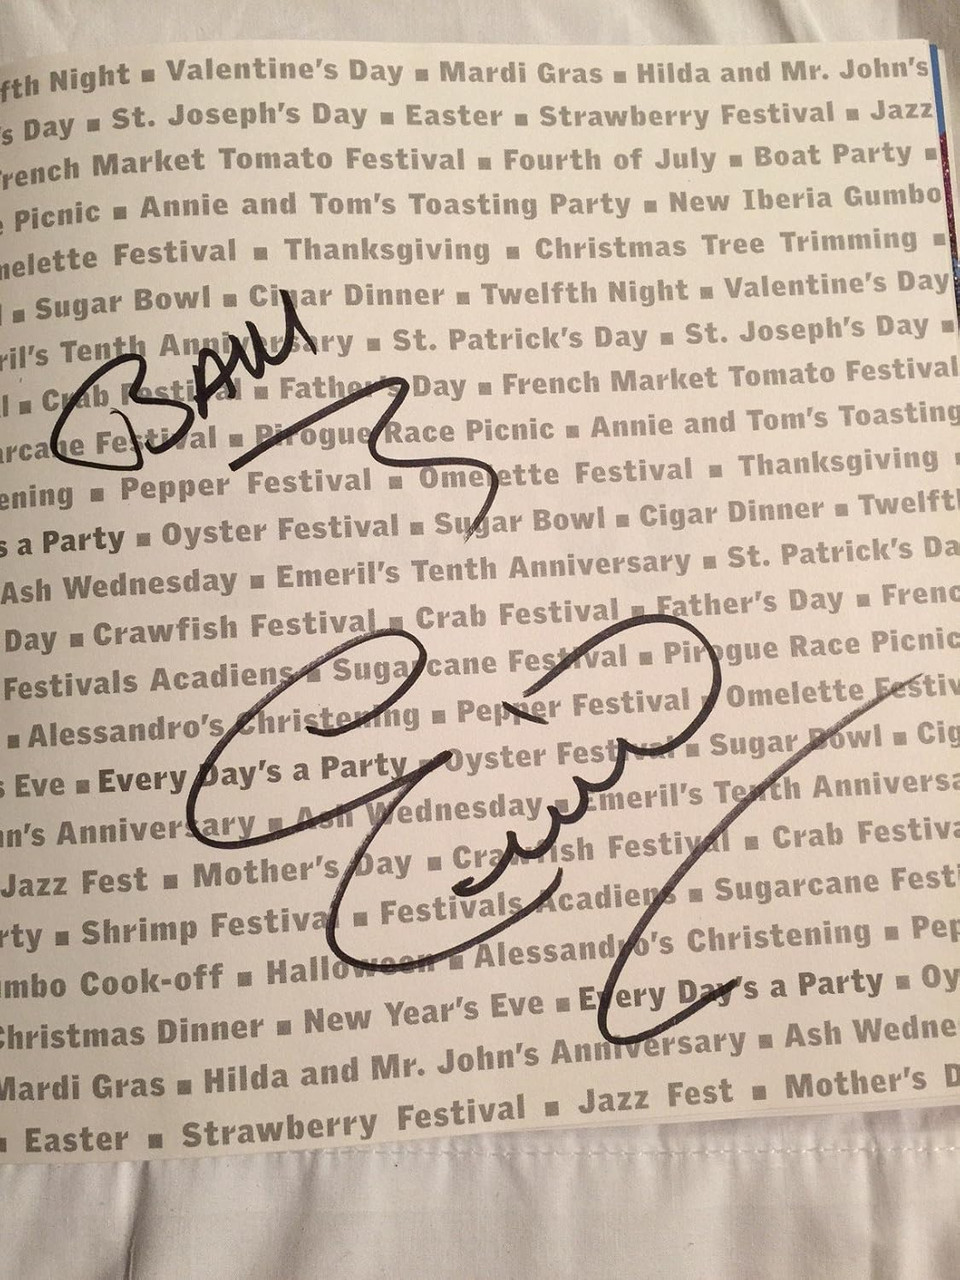 fth Night ▪ Valentine's Day ▪ Mardi Gras ▪ Hilda and Mr. John's
's Day ▪ St. Joseph's Day ▪ Easter ▪ Strawberry Festival ▪ Jazz
French Market Tomato Festival ▪ Fourth of July ▪ Boat Party ▪
e Picnic ▪ Annie and Tom's Toasting Party ▪ New Iberia Gumbo
melette Festival ▪ Thanksgiving ▪ Christmas Tree Trimming ▪
▪ Sugar Bowl ▪ Cigar Dinner ▪ Twelfth Night ▪ Valentine's Day
ril's Tenth Anniversary ▪ St. Patrick's Day ▪ St. Joseph's Day ▪
BAM
l ▪ Crab Festival ▪ Father's Day ▪ French Market Tomato Festival
arcane Festival ▪ Pirogue Race Picnic ▪ Annie and Tom's Toasting
ening ▪ Pepper Festival ▪ Omelette Festival ▪ Thanksgiving ▪
s a Party ▪ Oyster Festival ▪ Sugar Bowl ▪ Cigar Dinner ▪ Twelfth
Ash Wednesday ▪ Emeril's Tenth Anniversary ▪ St. Patrick's Da
Day ▪ Crawfish Festival ▪ Crab Festival ▪ Father's Day ▪ Frenc
Festivals Acadiens ▪ Sugarcane Festival ▪ Pirogue Race Picnic
▪ Alessandro's Christening ▪ Pepper Festival ▪ Omelette Festiv
s Eve ▪ Every Day's a Party ▪ Oyster Festival ▪ Sugar Bowl ▪ Cig
hn's Anniversary ▪ Ash Wednesday ▪ Emeril's Tenth Anniversa
Jazz Fest ▪ Mother's Day ▪ Crawfish Festival ▪ Crab Festiva
rty ▪ Shrimp Festival ▪ Festivals Acadiens ▪ Sugarcane Festi
umbo Cook-off ▪ Halloween ▪ Alessandro's Christening ▪ Pep
Christmas Dinner ▪ New Year's Eve ▪ Every Day's a Party ▪ Oy
Mardi Gras ▪ Hilda and Mr. John's Anniversary ▪ Ash Wedne
▪ Easter ▪ Strawberry Festival ▪ Jazz Fest ▪ Mother's D